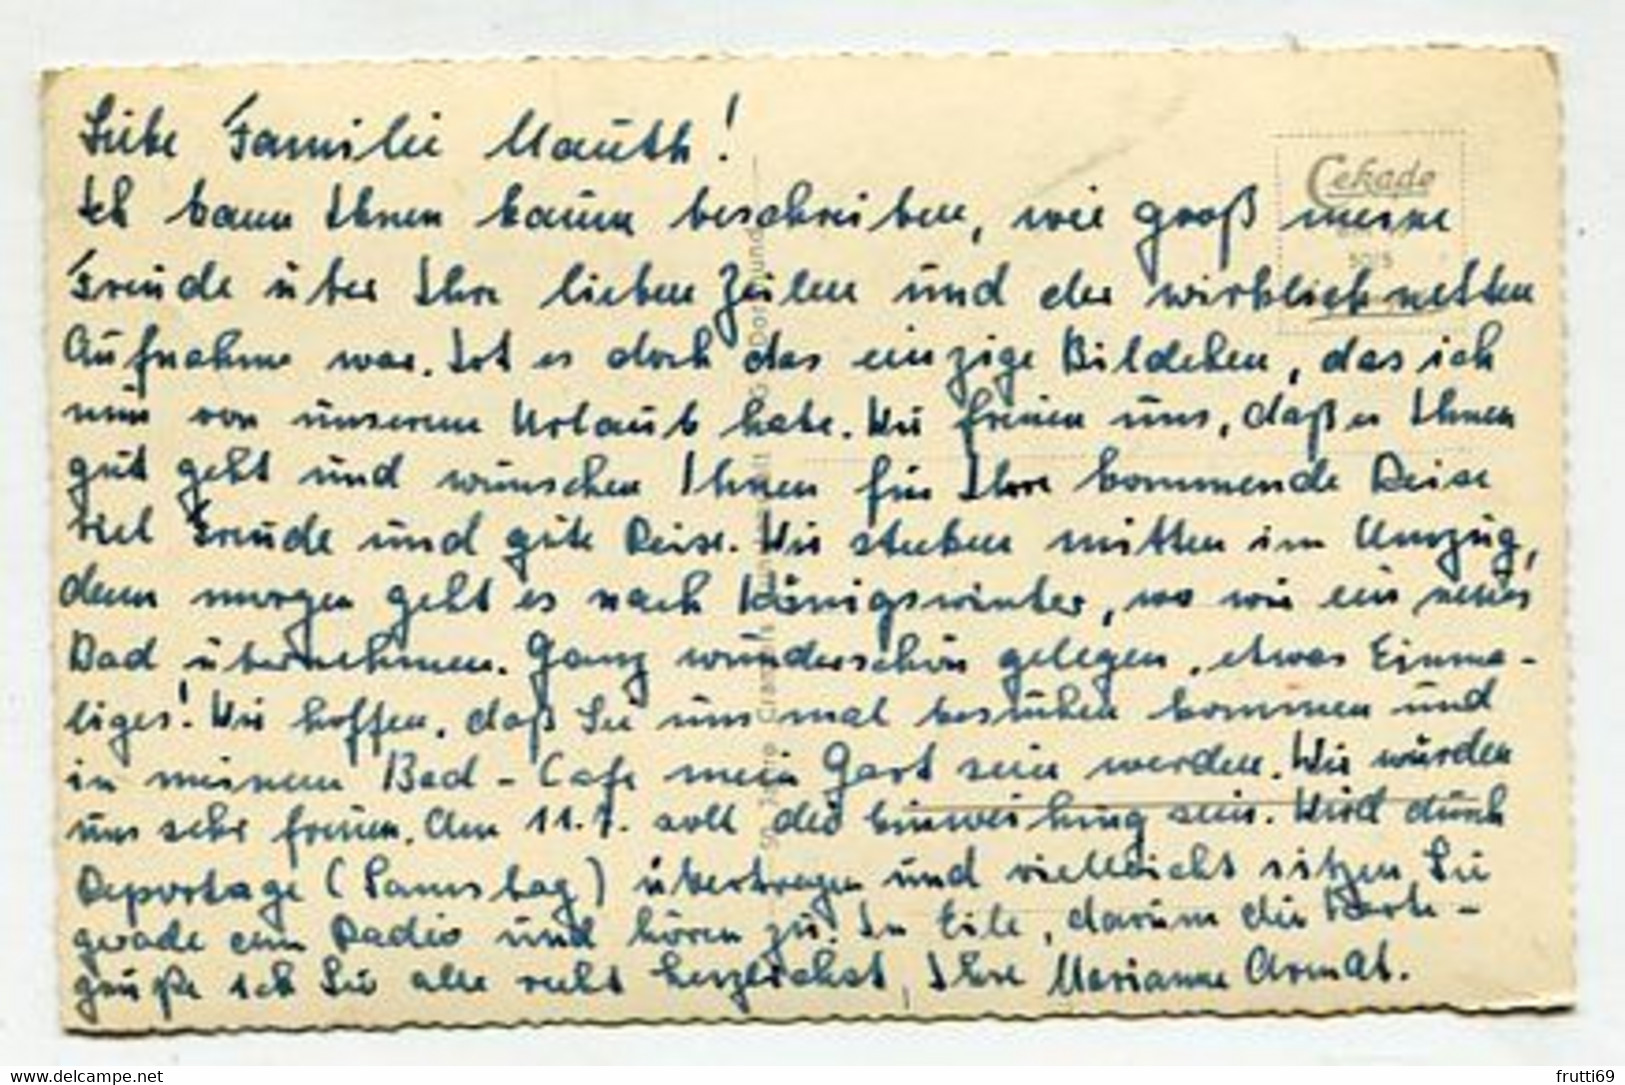 Liebe Familie Mauth!
Ich kann Ihnen kaum beschreiben, wie groß meine
Freude über Ihre lieben Zeilen und der wirklich netten
Aufnahme war. Ist es doch das einzige Bildchen, das ich
nun von unserem Urlaub habe. Wir freuen uns, daß es Ihnen
gut geht und wünschen Ihnen für Ihre kommende Reise
viel Freude und gute Reise. Wir stecken mitten im Umzug,
denn morgen geht es nach Königswinter, wo wir ein neues
Bad übernehmen. Ganz wunderschön gelegen, etwas Einma-
liges! Wir hoffen, daß Sie uns mal besuchen kommen und
in meinem Bad-Cafe mein Gast sein werden. Wir würden
uns sehr freuen. Am 11.7. soll die Einweihung sein. Wird durch
Reportage (Samstag) übertragen und vielleicht sitzen Sie
gerade am Radio und hören zu. In Eile, darum die Karte-
grüße ich Sie alle recht herzlichst, Ihre Marianne
Cekade
5015
frutti69
www.delcampe.net